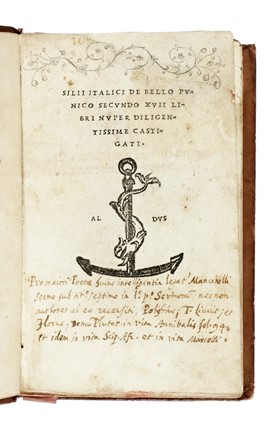 SILII ITALICI DE BELLO PV-
NICO SECVNDO XVII LI-
BRI NVPER DILIGEN-
TISSIME CASTI-
GATI.
AL DVS
Pro maiori Poetae huius intelligentia legat Mancinelli
septimo in necnon
authores ab eo recensiti, Polybius, T. Livius, et
Florus, demu Plutar. in vita Annibalis fol. 94.
et idem in vita Scip. Afr. et in vita Marcelli.